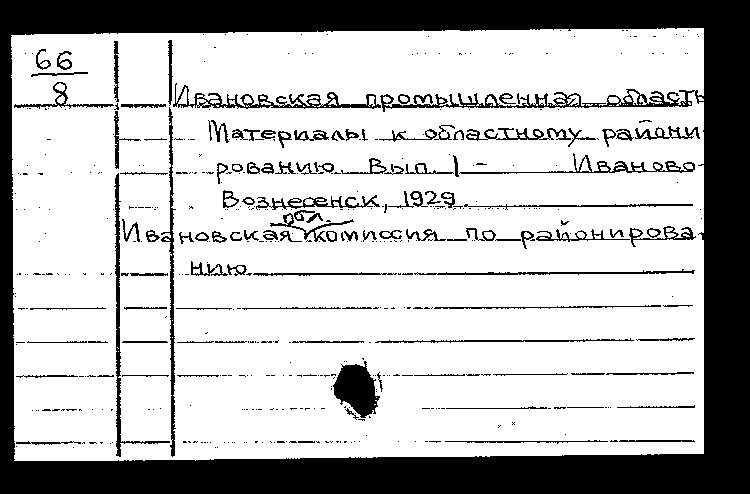 66
8
Ивановская промышленная область
Материалы к областному райони
рованию. Вып. 1 - Иваново-
Вознесенск, 1929.
обл.
Ивановская комиссия по районирова
нию